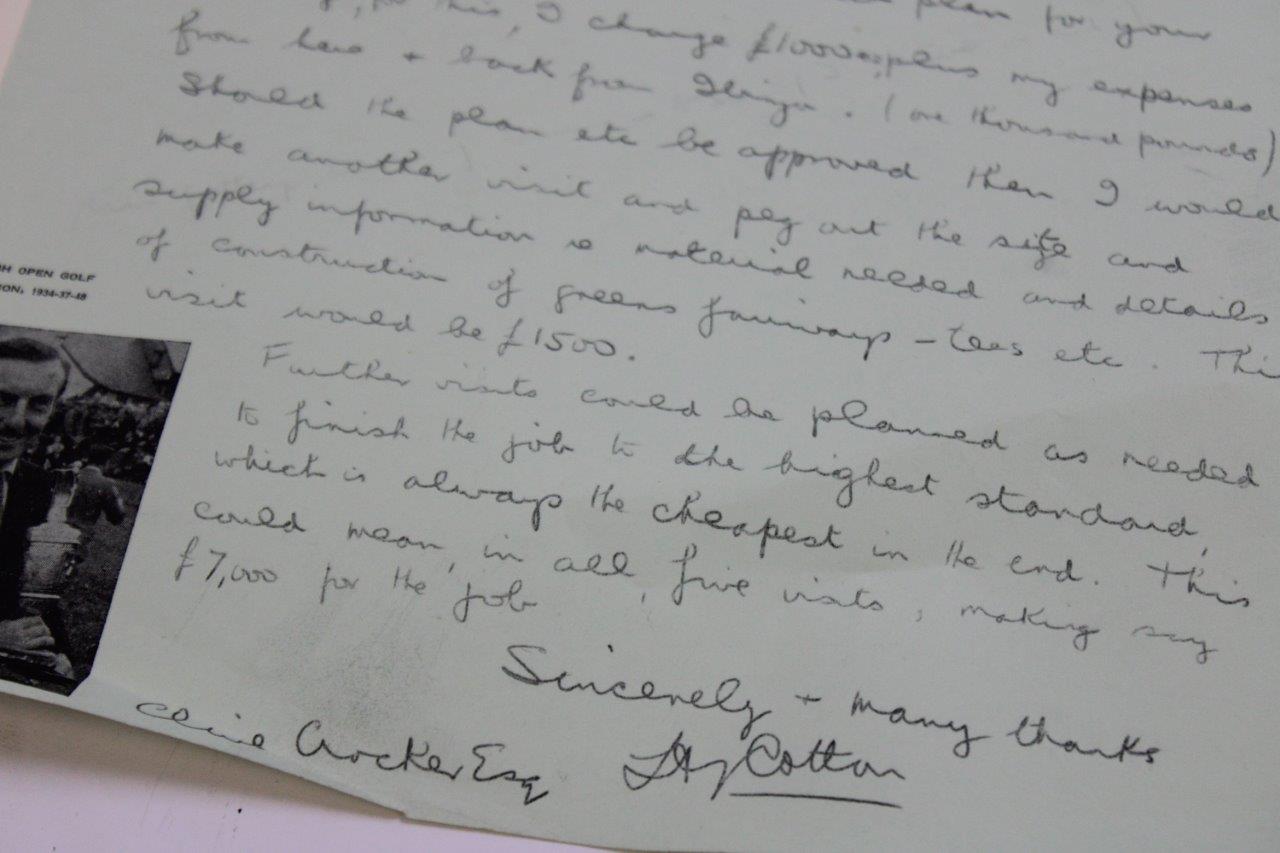 plan for your
for this, I charge £1000 plus my expenses
from here + back from . (one thousand pounds)
Should the plan etc be approved then I would
make another visit and peg out the site and
supply information re material needed and details
of construction of greens fairways - tees etc. Thi
visit would be £1500.
Further visits could be planned as needed
to finish the job to the highest standard,
which is always the cheapest in the end. This
could mean, in all, five visits, making say
£7,000 for the job
Sincerely + many thanks
Cotton
Clive Crocker Esq
H OPEN GOLF
ON, 1934-37-48